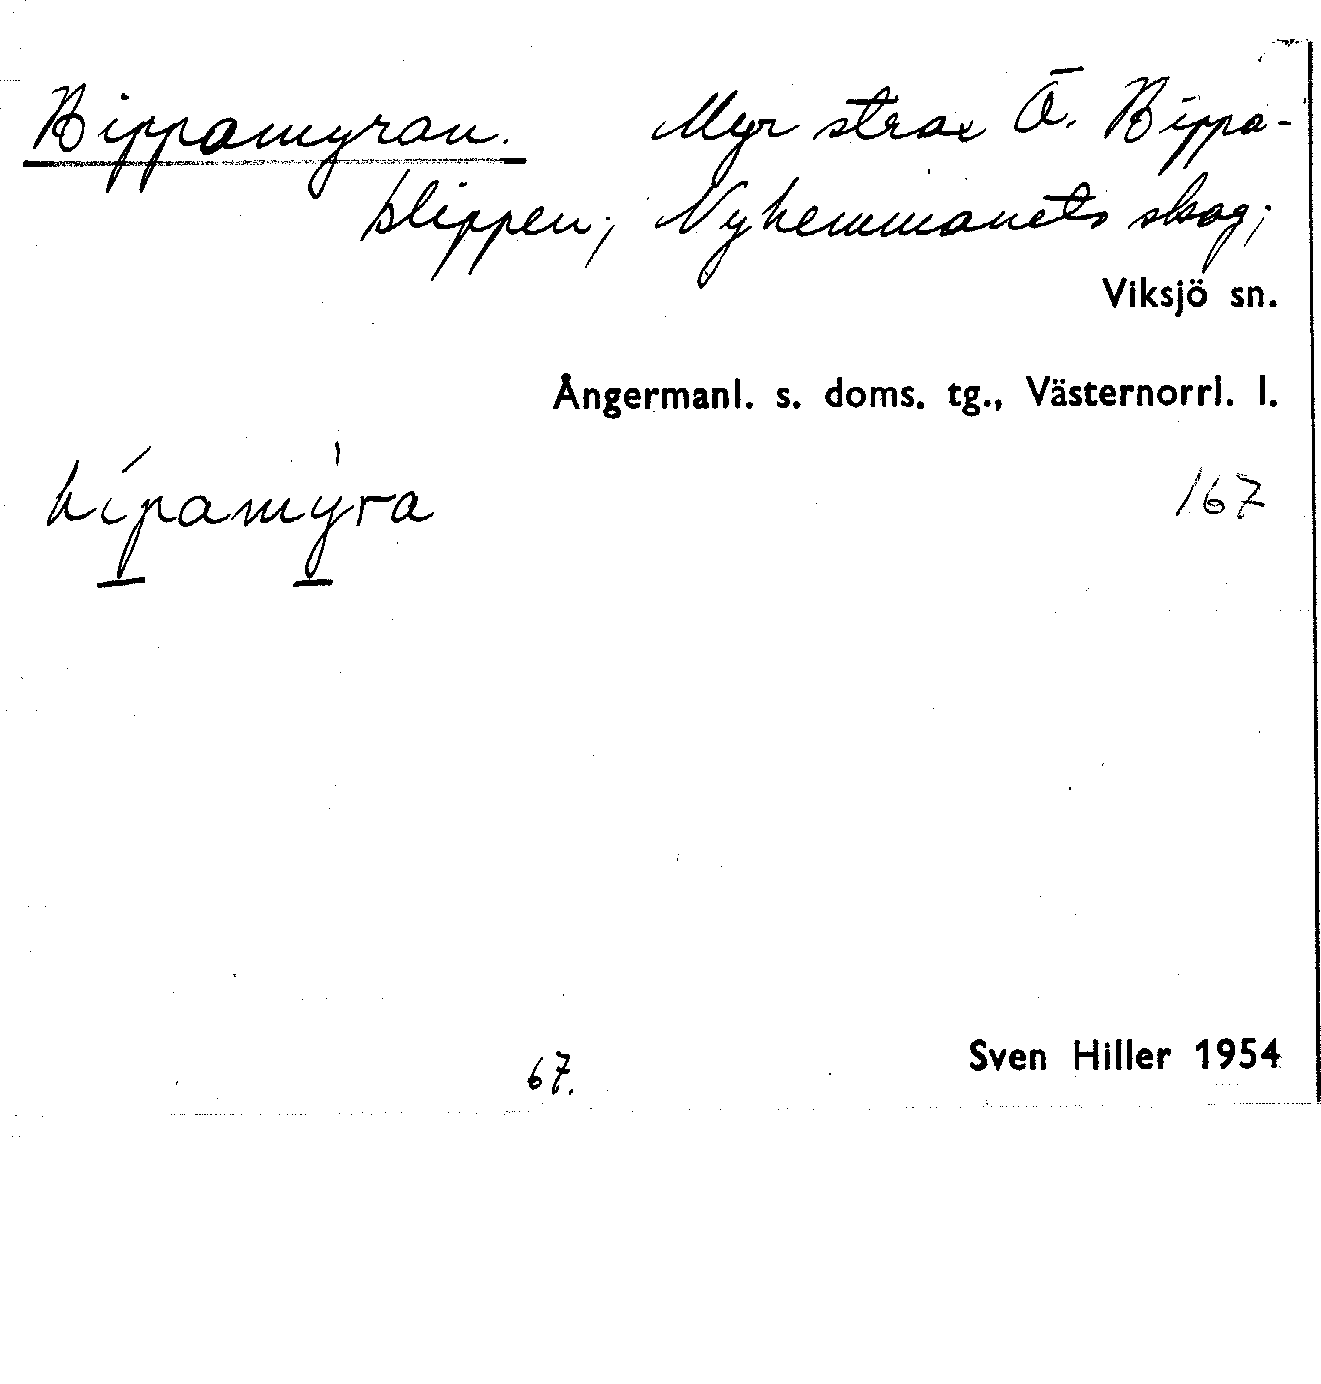 Bippamyran. Myr strax Ö. Bippa-
klippen; Nyhemmanets skog;
Viksjö sn.
Ångermanl. s. doms. tg., Västernorrl. l.
bipamyra 167
67. Sven Hiller 1954